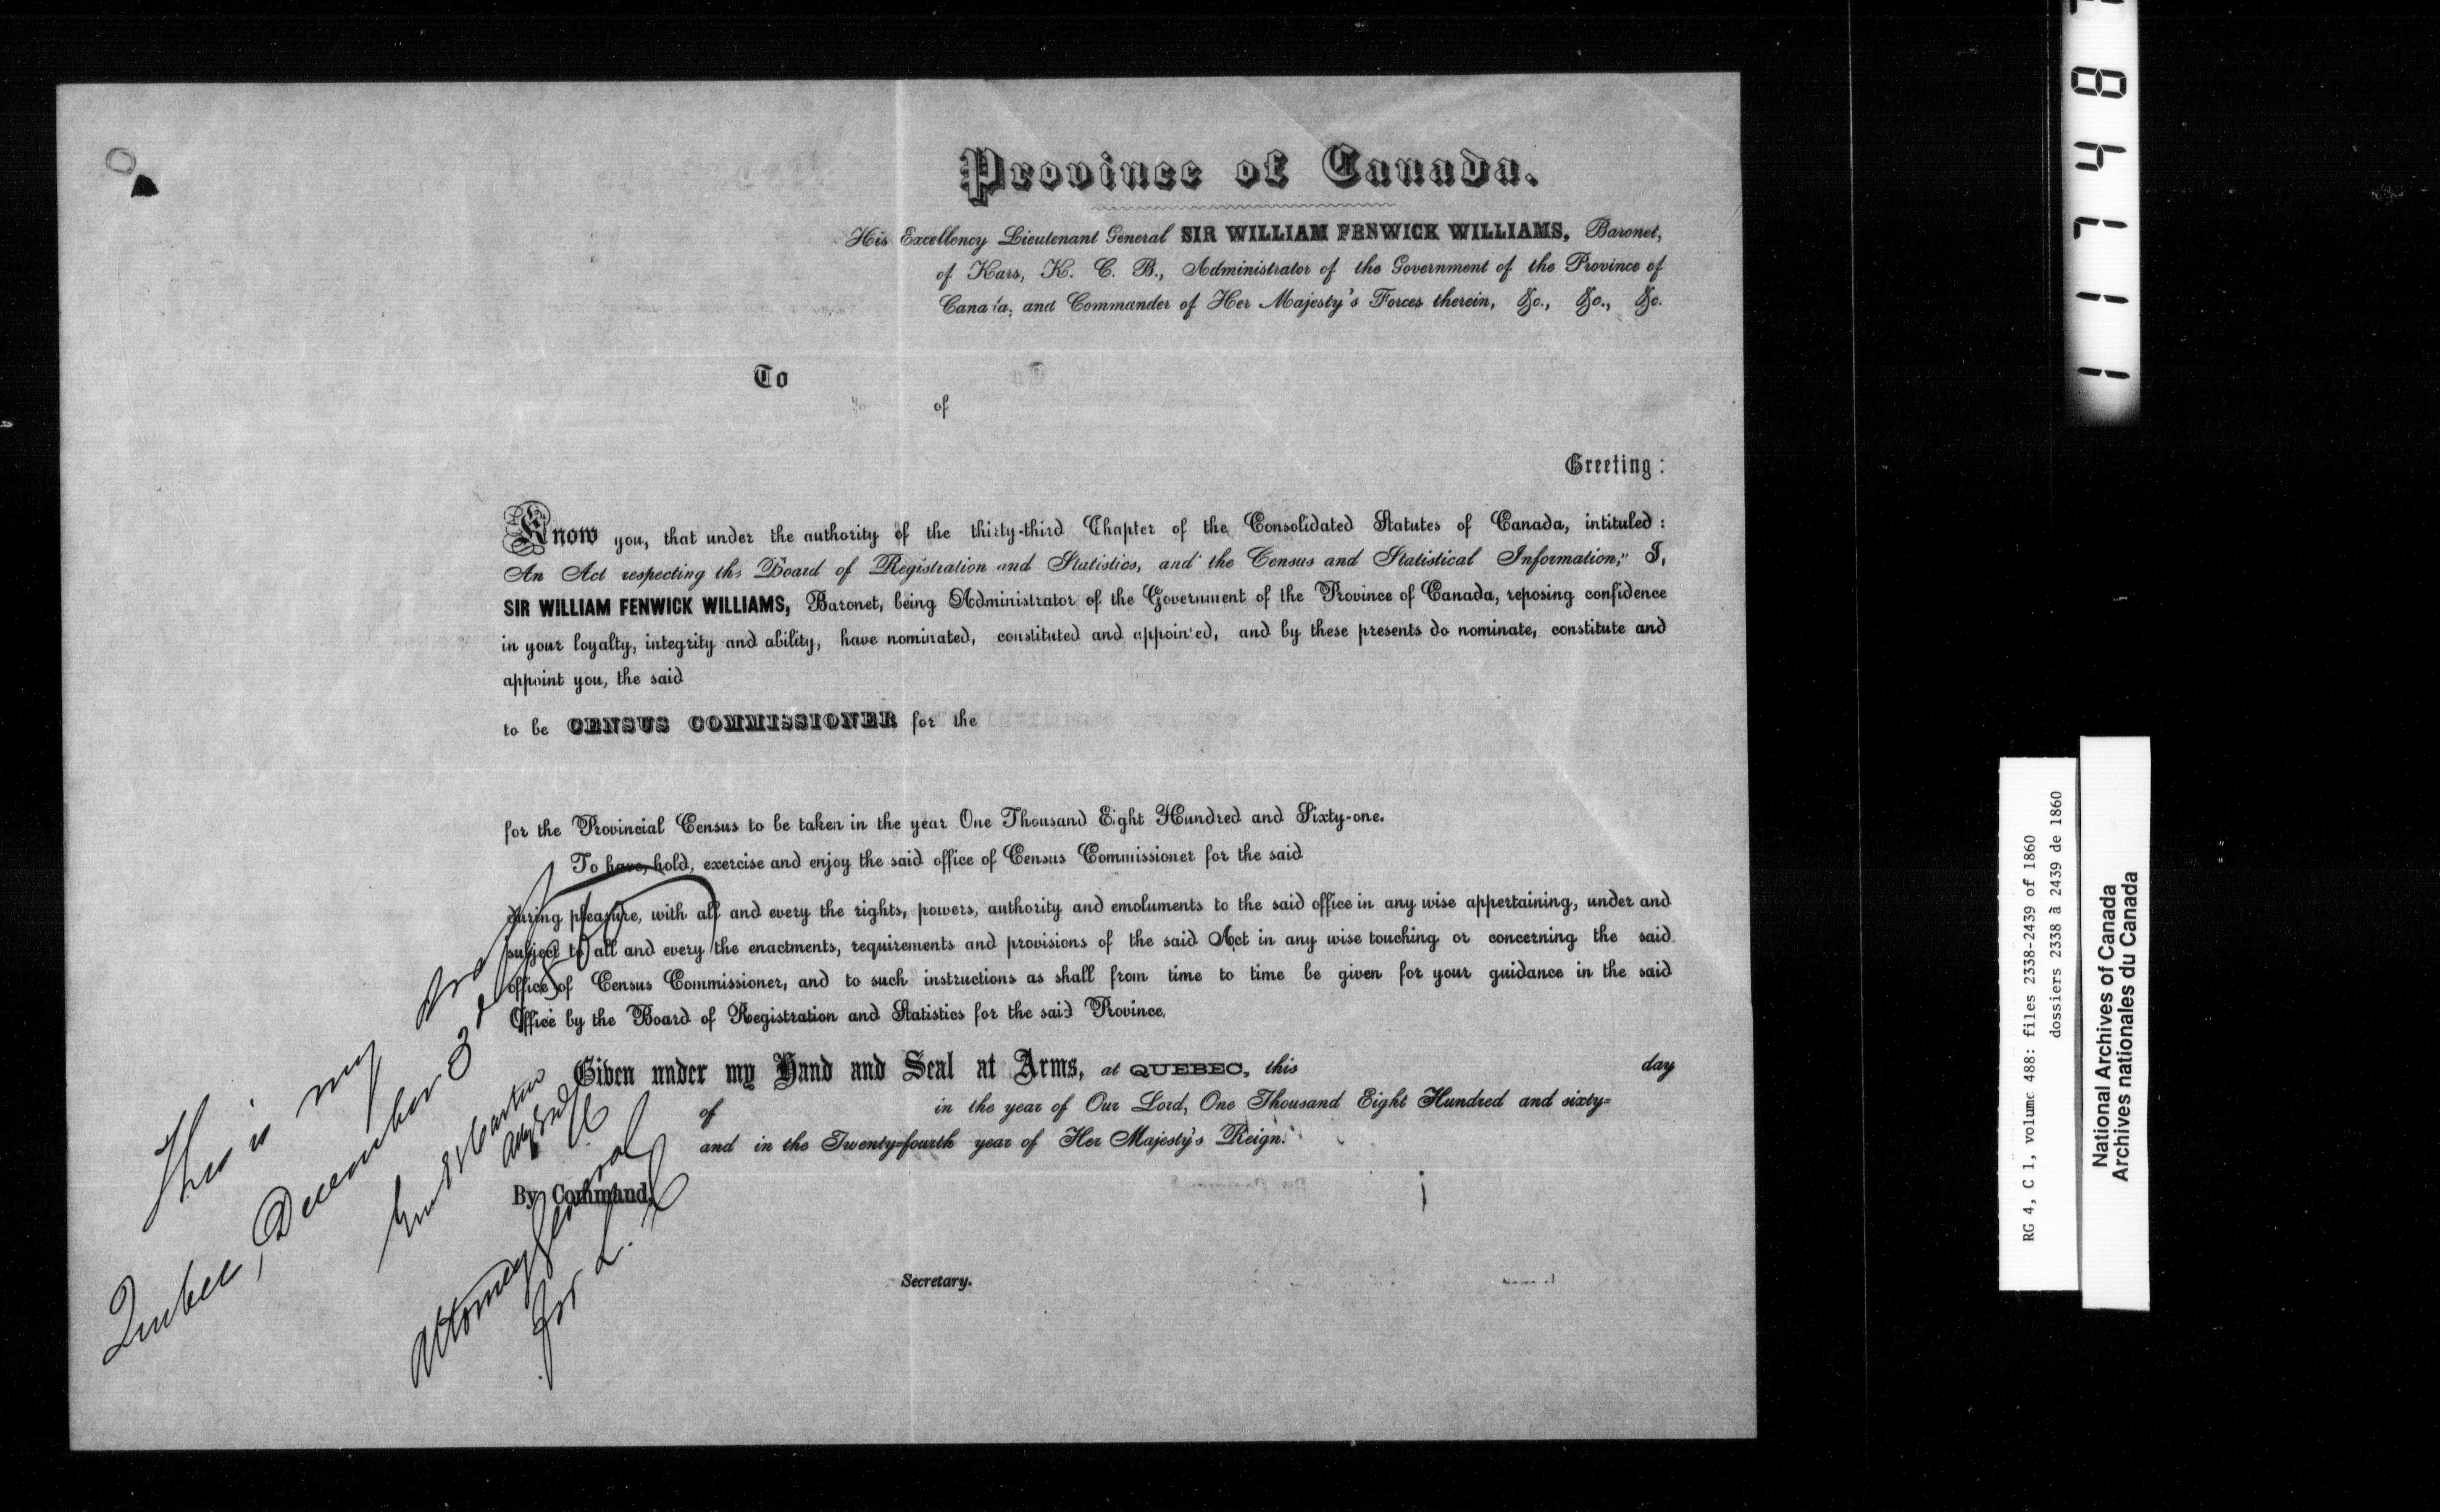 Province of Canada.
His Excellency Lieutenant General SIR WILLIAM FENWICK WILLIAMS, Baronet,
of Kars, K. C. B., Administrator of the Government of the Province of
Cana a, and Commander of Her Majesty's Forces therein, &c., &c., &c.
To
of
Greeting:
Know you, that under the authority of the thirty-third Chapter of the Consolidated Statutes of Canada, intituled:
An Act respecting the Board of Registration and Statistics, and the Census and Statistical Information," I,
SIR WILLIAM FENWICK WILLIAMS, Baronet, being Administrator of the Government of the Province of Canada, reposing confidence
in your loyalty, integrity and ability, have nominated, constituted and appointed, and by these presents do nominate, constitute and
appoint you, the said
to be CENSUS COMMISSIONER for the
for the Provincial Census to be taken in the year One Thousand Eight Hundred and Sixty-one.
To have, hold, exercise and enjoy the said office of Census Commissioner for the said
during pleasure, with all and every the rights, powers, authority and emoluments to the said office in any wise appertaining, under and
subject to all and every the enactments, requirements and provisions of the said Act in any wise touching or concerning the said
office of Census Commissioner, and to such instructions as shall from time to time be given for your guidance in the said
Office by the Board of Registration and Statistics for the said Province.
Given under my Hand and Seal at Arms, at QUEBEC, this day
of in the year of Our Lord, One Thousand Eight Hundred and sixty=
and in the Twenty=fourth year of Her Majesty's Reign.
By Command,
Secretary.
This is my draft
Quebec, December 3d
Attorney General
for L. C
111748
RG 4, C 1, volume 488: files 2338-2439 of 1860
dossiers 2338 à 2439 de 1860
National Archives of Canada
Archives nationales du Canada